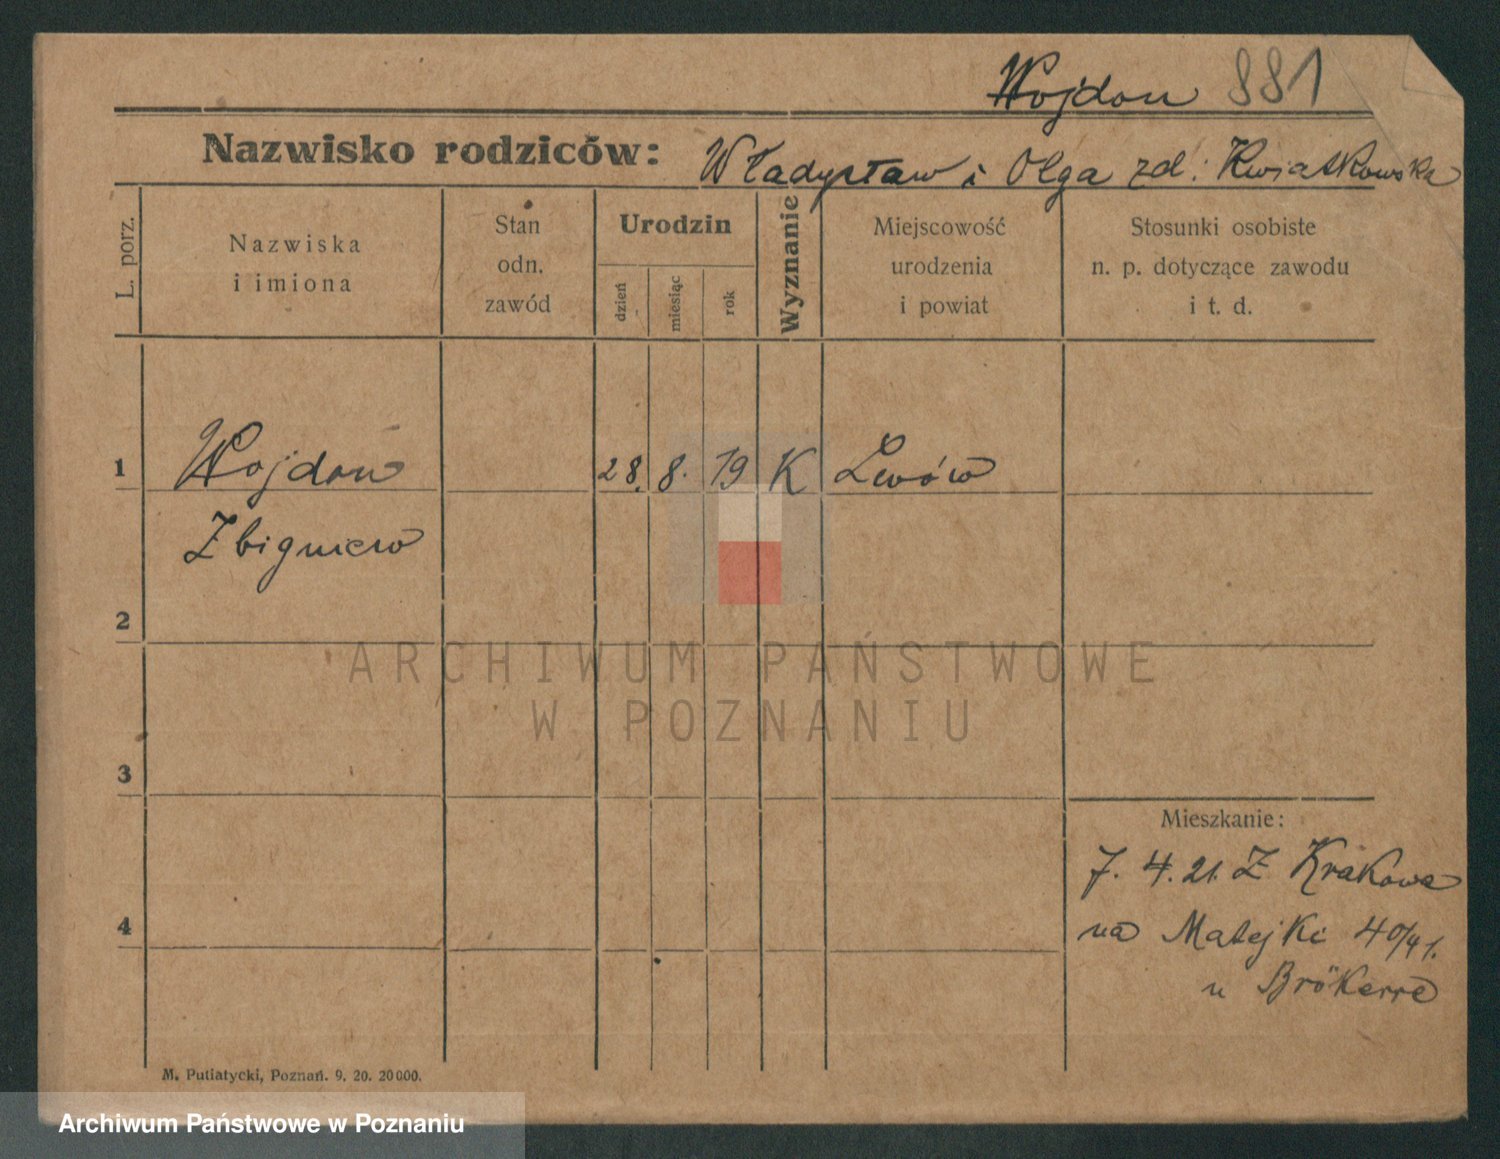 Wojdon 881
Nazwisko rodziców: Władysław i Olga zd. Kwiatkowska
L. porz.
Nazwiska
i imiona
Stan
odn.
zawód
Urodzin
dzień
miesiąc
rok
Wyznanie
Miejscowość
urodzenia
i powiat
Stosunki osobiste
n. p. dotyczące zawodu
i t. d.
1 Wojdon 28. 8. 19 K Lwów
Zbigniew
2
ARCHIWUM PAŃSTWOWE
W POZNANIU
3
Mieszkanie:
7. 4. 21. Z Krakowa
4
na Matejki 40/41.
u
M. Putiatycki, Poznań. 9. 20. 20000.
Archiwum Państwowe w Poznaniu